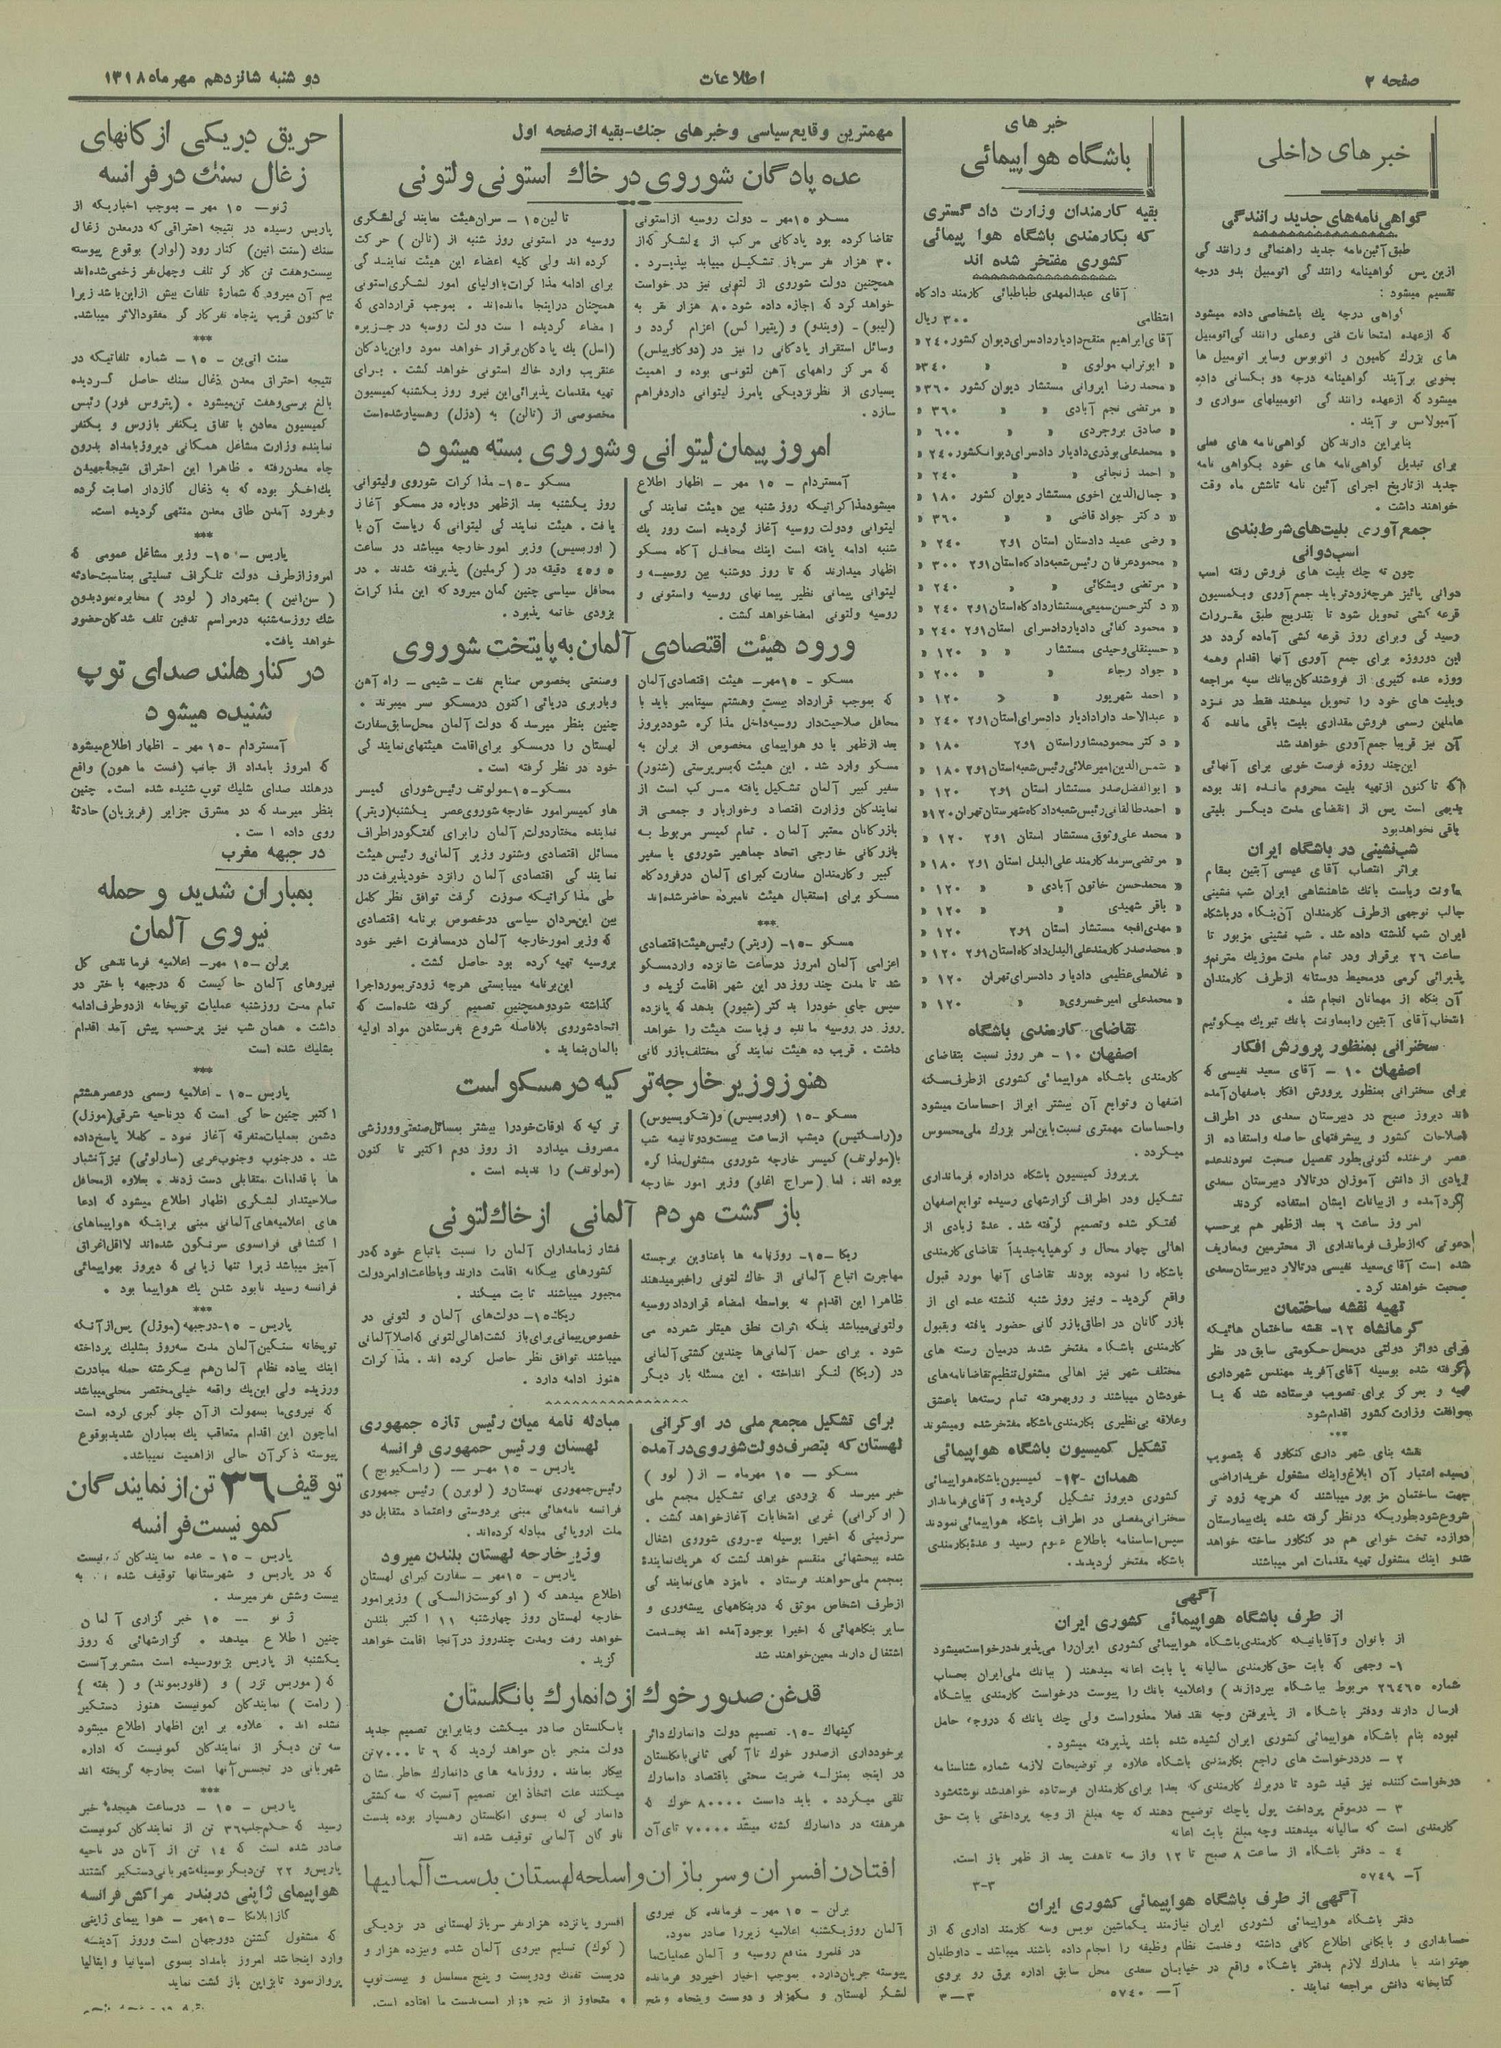 صفحه ۲
اطلاعات
دو شنبه شانزدهم مهر ماه ۱۳۱۸
خبر های داخلی
گواهی‌نامه‌های جدید رانندگی
طبق آئین‌نامه جدید راهنمائی و رانندگی
ازین پس گواهینامه رانندگی اتومبیل بدو درجه
تقسیم میشود :
گواهی درجه یك باشخاصی داده میشود
که ازعهده امتحانات فنی وعملی رانندگی اتومبیل
های بزرك کامیون و اتوبوس وسایر اتومبیل ها
بخوبی برآیند گواهینامه درجه دو بکسانی داده
میشود که ازعهده رانندگی اتومبیلهای سواری و
آمبولانس بر آیند .
بنابراین دارندگان گواهی‌نامه های فعلی
برای تبدیل گواهی‌نامه های خود بگواهی نامه
جدید ازتاریخ اجرای آئین نامه تاشش ماه وقت
خواهند داشت .
جمع‌آوری بلیت‌های شرط‌بندی
اسب‌دوانی
چون ته چك بلیت های فروش رفته اسب
دوانی پائیز هرچه‌زودترباید جمع‌آوری وبکمسیون
قرعه کشی تحویل شود تا بتدریج طبق مقررات
رسیدگی وبرای روز قرعه کشی آماده گردد در
این دوروزه برای جمع آوری آنها اقدام وهمه
روزه عده کثیری از فروشندگان ببانك سپه مراجعه
وبلیت های خود را تحویل میدهند فقط در نزد
عاملین رسمی فروش مقداری بلیت باقی مانده که
آن نیز قریبا جمع‌آوری خواهد شد
این‌چند روزه فرصت خوبی برای آنهائی
که تاکنون ازتهیه بلیت محروم مانده اند بوده
بدیهی است پس از انقضای مدت دیگر بلیتی
باقی نخواهدبود
شب‌نشینی در باشگاه ایران
براثر انتصاب آقای عیسی آبتین بمقام
معاونت ریاست بانك شاهنشاهی ایران شب نشینی
جالب توجهی ازطرف کارمندان آن‌بنگاه درباشگاه
ایران شب گذشته داده شد . شب نشینی مزبور تا
ساعت ۲۶ برقرار ودر تمام مدت موزیك مترنم‌و
پذیرائی گرمی درمحیط دوستانه ازطرف کارمندان
آن بنگاه از مهمانان انجام شد .
انتخاب‌آقای آبتین رابمعاونت بانك تبریك میگوئیم
سخنرانی بمنظور پرورش افکار
اصفهان ۱۰ - آقای سعید نفیسی که
برای سخنرانی بمنظور پرورش افکار باصفهان‌آمده
اند دیروز صبح در دبیرستان سعدی در اطراف
اصلاحات کشور و پیشرفتهای حاصله واستفاده از
عصر فرخنده کنونی‌بطور تفصیل صحبت نمودندعده
زیادی از دانش آموزان درتالار دبیرستان سعدی
گردآمده و ازبیانات ایشان استفاده کردند
امروز ساعت ۶ بعد ازظهر هم برحسب
دعوتی که‌ازطرف فرمانداری از محترمین ومعاریف
شده است آقای‌سعید نفیسی درتالار دبیرستان‌سعدی
صحبت خواهند کرد .
تهیه نقشه ساختمان
کرمانشاه ۱۲- نقشه ساختمان هائیکه
برای دوائر دولتی درمحل‌حکومتی سابق در نظر
گرفته شده بوسیله آقای‌آفرید مهندس شهرداری
تهیه و بمرکز برای تصویب فرستاده شد که با
موافقت وزارت کشور اقدام‌شود
***
نقشه بنای شهر داری کنگاور که بتصویب
رسیده اعتبار آن ابلاغ‌واینك مشغول خریداراضی
جهت ساختمان مزبور میباشند که هرچه زود تر
شروع‌شود بطوریکه درنظر گرفته شده یك‌بیمارستان
دوازده تخت خوابی هم در کنگاور ساخته خواهد
شدو اینك مشغول تهیه مقدمات امر میباشند
خبر های
باشگاه هواپیمائی
بقیه کارمندان وزارت دادگستری
که بکارمندی باشگاه هوا پیمائی
کشوری مفتخر شده اند
آقای عبدالمهدی طباطبائی کارمند دادگاه
انتظامی ۳۰۰ ریال
آقای‌ابراهیم منقح‌دادیاردادسرای‌دیوان کشور ۲۴۰ »
» ابوتراب مولوی » » ۳۴۰ »
» محمدرضا ایروانی مستشار دیوان کشور ۳۶۰ »
» مرتضی نجم آبادی » » ۳۶۰ »
» صادق بروجردی » » ۶۰۰ »
» محمدعلی‌بوذری‌دادیار دادسرای‌دیوانکشور ۲۴۰ »
» احمد زنجانی » » ۲۴۰ »
» جمال‌الدین اخوی مستشار دیوان کشور ۱۸۰ »
» دکتر جواد قاضی » » ۳۶۰ »
» رضی عمید دادستان استان ۱و۲ ۲۴۰ »
» محمودعرفان رئیس‌شعبه‌دادگاه‌استان ۱و۲ ۳۰۰ »
» مرتضی ویشکائی » » ۲۴۰ »
» دکترحسن‌سمیعی‌مستشاردادگاه‌استان ۱و۲ ۲۴۰ »
» محمود کفائی دادیاردادسرای استان ۱و۲ ۲۴۰ »
» حسینقلی‌وحیدی مستشار » » ۱۲۰ »
» جواد رجاء » » ۲۰۰ »
» احمد شهرپور » » ۱۲۰ »
» عبدالاحد دارادادیار دادسرای‌استان ۱و۲ ۲۴۰ »
» دکتر محمودمشاوراستان ۱و۲ ۱۸۰ »
» شمس‌الدین‌امیرعلائی‌رئیس‌شعبه‌استان ۱و۲ ۱۸۰ »
» ابوالفضل‌صدر مستشار استان ۱و۲ ۱۲۰ »
» احمدطالقانی‌رئیس‌شعبه‌دادگاه‌شهرستان تهران ۱۲۰ »
» محمد علی‌وثوق مستشار استان ۱و۲ ۱۲۰ »
» مرتضی‌سرمدکارمند علی‌البدل استان ۱و۲ ۱۸۰ »
» محمدحسن خاتون آبادی » » ۱۲۰ »
» باقر شهیدی » » ۱۲۰ »
» مهدی‌افجه مستشار استان ۱و۲ ۱۲۰ »
» محمدصدرکارمندعلی‌البدل‌دادگاه‌استان ۱و۲ ۱۲۰ »
» غلامعلی‌عظیمی دادیار دادسرای‌تهران ۱۲۰ »
» محمدعلی امیرخسروی » ۱۲۰ »
تقاضای کارمندی باشگاه
اصفهان ۱۰ - هر روز نسبت بتقاضای
کارمندی باشگاه هواپیمائی کشوری ازطرف‌سکنه
اصفهان وتوابع آن بیشتر ابراز احساسات میشود
واحساسات مهمتری نسبت باین‌امر بزرك ملی‌محسوس
میگردد .
پریروز کمیسیون باشگاه دراداره فرمانداری
تشکیل ودر اطراف گزارشهای رسیده توابع‌اصفهان
گفتگو شده وتصمیم گرفته شد . عدهٔ زیادی از
اهالی چهار محال و کوهپایه‌جدیداً تقاضای کارمندی
باشگاه را نموده بودند تقاضای آنها مورد قبول
واقع گردید - ونیز روز شنبه گذشته عده ای از
بازرگانان در اطاق‌بازرگانی حضور یافته وبقبول
کارمندی باشگاه مفتخر شدند درمیان رسته های
مختلف شهر نیز اهالی مشغول‌تنظیم‌تقاضانامه‌های
خودشان میباشند و رویهمرفته تمام رسته‌ها باعشق
وعلاقه بی‌نظیری بکارمندی‌باشگاه مفتخرشده ومیشوند
تشکیل کمیسیون باشگاه هواپیمائی
همدان -۱۲- کمیسیون‌باشگاه‌هواپیمائی
کشوری دیروز تشکیل گردیده و آقای‌فرماندار
سخنرانی‌مفصلی در اطراف باشگاه هواپیمائی نمودند
سپس‌اساسنامه باطلاع عموم رسید و عدهٔ‌بکارمندی
باشگاه مفتخر گردیدند.
آگهی
از طرف باشگاه هواپیمائی کشوری ایران
از بانوان وآقایانیکه کارمندی‌باشگاه هواپیمائی کشوری ایران‌را می‌پذیرنددرخواست‌میشود
۱- وجهی که بابت حق‌کارمندی سالیانه یا بابت اعانه میدهند ( ببانك ملی‌ایران بحساب
شماره ۲۶۴۶۵ مربوط بباشگاه بپردازند ) واعلامیه بانك را پیوست درخواست کارمندی بباشگاه
ارسال دارند ودفتر باشگاه از پذیرفتن وجه نقد فعلا معذوراست ولی چك بانك که دروجه حامل
نبوده بنام باشگاه هواپیمائی کشوری ایران کشیده شده باشد پذیرفته میشود .
۲ - دردرخواست های راجع بکارمندی باشگاه علاوه بر توضیحات لازمه شماره شناسنامه
درخواست کننده نیز قید شود تا دربرك کارمندی که بعدا برای‌کارمندان فرستاده خواهدشد نوشته‌شود
۳ - درموقع پرداخت پول یاچك توضیح دهند که چه مبلغ از وجه پرداختی بابت حق
کارمندی است که سالیانه میدهند وچه مبلغ بابت اعانه
۴ - دفتر باشگاه از ساعت ۸ صبح تا ۱۲ واز سه تاهفت بعد از ظهر باز است.
آ- ۵۷۴۹ ۳-۳
آگهی از طرف باشگاه هواپیمائی کشوری ایران
دفتر باشگاه هواپیمائی کشوری ایران نیازمند یکماشین نویس وسه کارمند اداری که از
حسابداری و بایگانی اطلاع کافی داشته وخدمت نظام وظیفه را انجام داده باشند میباشد - داوطلبان
میتوانند با مدارك لازم بدفتر باشگاه واقع در خیابان سعدی محل سابق اداره برق رو بروی
کتابخانه دانش مراجعه نمایند . آ- ۵۷۴۰ ۳-۳
مهمترین وقایع‌سیاسی وخبرهای جنك-بقیه ازصفحه اول
عده پادگان شوروی در خاك استونی ولتونی
مسکو ۱۵مهر- دولت روسیه ازاستونی
تقاضاکرده بود پادگانی مرکب از ۴لشگرکه‌از
۳۰ هزار نفر سرباز تشکیل مییابد بپذیرد .
همچنین دولت شوروی از لتونی نیز درخواست
خواهد کرد که اجازه داده شود ۸۰ هزار نفر به
(لیبو)- (ویندو) و (پتیراکس) اعزام گردد و
وسائل استقرار پادگانی را نیز در (دوگاوپیلس)
که مرکز راههای آهن لتونی بوده و اهمیت
بسیاری از نظرنزدیکی بامرز لیتوانی داردفراهم
سازد .
تالین ۱۵ - سران‌هیئت نمایندگی‌لشگری
روسیه در استونی روز شنبه از (تالن) حرکت
کرده اند ولی کلیه اعضاء این هیئت نمایندگی
برای ادامه مذاکرات بااولیای امور لشگری‌استونی
همچنان دراینجا مانده‌اند . بموجب قراردادی که
امضاء گردیده است دولت روسیه در جزیره
(اسل) یك پادگان‌برقرار خواهد نمود واین‌پادگان
عنقریب وارد خاك استونی خواهد گشت . برای
تهیه مقدمات پذیرائی‌این نیرو روز یکشنبه کمیسیون
مخصوصی از (تالن) به (دزل) رهسپارشده‌است
امروز پیمان لیتوانی و شوروی بسته میشود
آمستردام - ۱۵ مهر - اظهار اطلاع
میشودمذاکراتیکه روز شنبه بین هیئت نمایندگی
لیتوانی ودولت روسیه آغاز گردیده است روز یك
شنبه ادامه یافته است اینك محافل آگاه مسکو
اظهار میدارند که تا روز دوشنبه بین روسیه و
لیتوانی پیمانی نظیر پیمانهای روسیه واستونی و
روسیه ولتونی امضاخواهد گشت .
مسکو -۱۵- مذاکرات شوروی ولیتوانی
روز یکشنبه بعد ازظهر دوباره در مسکو آغاز
یافت . هیئت نمایندگی لیتوانی که ریاست آن با
( اوربسیس) وزیر امور خارجه میباشد در ساعت
۵و۴۵ دقیقه در ( کرملین) پذیرفته شدند . در
محافل سیاسی چنین گمان میرود که این مذاکرات
بزودی خاتمه پذیرد .
ورود هیئت اقتصادی آلمان به‌پایتخت شوروی
مسکو - ۱۵مهر- هیئت اقتصادی‌آلمان
که بموجب قرارداد بیست وهشتم سپتامبر باید با
محافل صلاحیت‌دار روسیه‌داخل مذاکره شوددیروز
بعد ازظهر با دو هواپیمای مخصوص از برلن به
مسکو وارد شد . این هیئت که‌بسرپرستی (شنور)
سفیر کبیر آلمان تشکیل یافته مرکب است از
نمایندگان وزارت اقتصاد وخواربار و جمعی از
بازرگانان معتبر آلمان . تمام کمیسر مربوط به
بازرگانی خارجی اتحاد جماهیر شوروی با سفیر
کبیر وکارمندان سفارت کبرای آلمان درفرودگاه
مسکو برای استقبال هیئت نامبرده حاضرشده‌اند
***
مسکو -۱۵- (ریتر) رئیس‌هیئت‌اقتصادی
اعزامی آلمان امروز درساعت شانزده واردمسکو
شد تا مدت چند روز در این شهر اقامت گزیده و
سپس جای خودرا بدکتر (شیور) بدهد که پانزده
روز در روسیه مانده و ریاست هیئت را خواهد
داشت . قریب ده هیئت نمایندگی مختلف‌بازرگانی
وصنعتی بخصوص صنایع نفت - شیمی - راه آهن
وباربری دریائی اکنون درمسکو سر میبرند .
چنین بنظر میرسد که دولت آلمان محل‌سابق‌سفارت
لهستان را درمسکو برای‌اقامت هیئتهای‌نمایندگی
خود در نظر گرفته است .
مسکو-۱۵-مولوتف رئیس‌شورای کمیسر
هاو کمیسرامور خارجه شوروی‌عصر یکشنبه(ریتر)
نماینده مختاردولت آلمان رابرای گفتگودراطراف
مسائل اقتصادی وشنور وزیر آلمانی‌و رئیس هیئت
نمایندگی اقتصادی آلمان رانزد خودپذیرفت در
طی مذاکراتیکه صورت گرفت توافق نظر کامل
بین این‌مردان سیاسی درخصوص برنامه اقتصادی
که وزیر امورخارجه آلمان درمسافرت اخیر خود
بروسیه تهیه کرده بود حاصل گشت .
این‌برنامه میبایستی هرچه زودتربمورداجرا
گذاشته شودوهمچنین تصمیم گرفته شده‌است که
اتحادشوروی بلافاصله شروع بفرستادن مواد اولیه
بالمان‌بنماید .
هنوز وزیرخارجه‌ترکیه درمسکو است
مسکو -۱۵ (اوربسیس) و(نتکویسیوس)
و(راستکیس) دیشب ازساعت بیست‌ودوتانیمه شب
با(مولوتف) کمیسر خارجه شوروی مشغول‌مذاکره
بوده اند . اما (سراج اغلو) وزیر امور خارجه
ترکیه که اوقات‌خودرا بیشتر بمسائل‌صنعتی‌وورزشی
مصروف میدارد از روز دوم اکتبر تا کنون
(مولوتف) را ندیده است .
بازگشت مردم آلمانی ازخاك‌لتونی
ریگا -۱۵- روزنامه ها باعناوین برجسته
مهاجرت اتباع آلمانی از خاك لتونی راخبرمیدهند
ظاهرا این اقدام نه بواسطه امضاء قراردادروسیه
ولتونی‌میباشد بلکه اثرات نطق هیتلر شمرده می
شود . برای حمل آلمانی‌ها چندین کشتی‌آلمانی
در (ریگا) لنگر انداخته . این مسئله بار دیگر
فشار زمامداران آلمان را نسبت باتباع خودکه‌در
کشورهای بیگانه اقامت دارند وباطاعت‌اوامردولت
مجبور میباشند ثابت میکند.
ریگا-۱۵- دولت‌های آلمان و لتونی در
خصوص‌پیمانی‌برای‌بازگشت‌اهالی‌لتونی که‌اصلاآلمانی
میباشند توافق نظر حاصل کرده اند . مذاکرات
هنوز ادامه دارد .
برای تشکیل مجمع ملی در اوکرانی
لهستان‌که بتصرف‌دولت‌شوروی‌درآمده
مسکو - ۱۵ مهرماه - از( لوو )
خبر میرسد که بزودی برای تشکیل مجمع ملی
( اوکرانی) غربی انتخابات آغازخواهد گشت .
سرزمینی که اخیرا بوسیله نیروی شوروی اشغال
شده ببخشهائی منقسم خواهد گشت که هریك‌نماینده
بمجمع ملی‌خواهند فرستاد . نامزد های‌نمایندگی
ازطرف اشخاص موثق که دربنگاههای پیشه‌وری و
سایر بنگاههائی که اخیرا بوجودآمده اند بخدمت
اشتغال دارند معین‌خواهند شد
مبادله نامه میان رئیس تازه جمهوری
لهستان ورئیس جمهوری فرانسه
پاریس - ۱۵ مهر - ( راسکیویچ )
رئیس‌جمهوری لهستان‌و ( لوبرن ) رئیس جمهوری
فرانسه نامه‌هائی مبنی بردوستی واعتماد متقابل‌دو
ملت اروپائی مبادله کرده‌اند .
وزیرخارجه لهستان بلندن میرود
پاریس - ۱۵مهر - سفارت کبرای لهستان
اطلاع میدهد که ( اوگوست‌زالسکی ) وزیرامور
خارجه لهستان روز چهارشنبه ۱۱ اکتبر بلندن
خواهد رفت ومدت چندروز درآنجا اقامت خواهد
گزید .
قدغن صدور خوك از دانمارك بانگلستان
کپنهاك -۱۵- تصمیم دولت دانمارك‌دائر
برخودداری ازصدور خوك تاآگهی ثانی‌بانگلستان
در اینجا بمنزله ضربت سختی باقتصاد دانمارك
تلقی میگردد . باید دانست ۸۰۰۰۰ خوك که
هرهفته در دانمارك کشته میشد ۷۰۰۰۰ تای‌آن
بانگلستان صادر میگشت وبنابراین تصمیم جدید
دولت منجر بان خواهد گردید که ۶ تا ۷۰۰۰تن
بیکار بمانند . روزنامه های دانمارك خاطرنشان
میکنند علت اتخاذ این تصمیم آنست که سه کشتی
دانمارکی که بسوی انگلستان رهسپار بوده بدست
ناوگان آلمانی توقیف شده اند
افتادن افسران و سربازان و اسلحه لهستان بدست آلمانیها
برلن - ۱۵ مهر- فرمانده کل نیروی
آلمان روزیکشنبه اعلامیه زیررا صادر نمود.
در قلمرو منافع روسیه و آلمان عملیات‌ما
پیوسته جریان‌دارد. بموجب اخبار اخیردو فرمانده
لشگر لهستان و یکهزار و دویست وپنجاه وپنج
افسرو پانزده هزارنفر سرباز لهستانی در نزدیکی
( کوك) تسلیم نیروی آلمان شده وسیزده هزار و
دویست تفنك ودویست و پنج مسلسل و بیست‌توپ
و متجاوز از پنج هزار اسب‌بدست ما افتاده است.
حریق در یکی از کانهای
زغال سنك در فرانسه
ژنو- ۱۵ مهر - بموجب اخباریکه از
پاریس رسیده در نتیجه احتراقی که درمعدن زغال
سنك (سنت اتین) کنار رود (لوار) بوقوع پیوسته
بیست‌وهفت تن کارگر تلف وچهل‌نفر زخمی‌شده‌اند
بیم آن میرود که شمارهٔ تلفات بیش ازاین‌باشد زیرا
تاکنون قریب پنجاه نفرکارگر مفقودالاثر میباشد.
***
سنت اتی‌ین - ۱۵ - شماره تلفاتیکه در
نتیجه احتراق معدن ذغال سنك حاصل گردیده
بالغ برسی‌وهفت تن‌میشود . (پتروس فور) رئیس
کمیسیون معادن با تفاق یکنفر بازرس و یکنفر
نماینده وزارت مشاغل همگانی دیروزبامداد بدرون
چاه معدن‌رفته . ظاهرا این احتراق نتیجهٔ‌جهیدن
یك‌اخگر بوده که به ذغال گازدار اصابت کرده
وبفرود آمدن طاق معدن منتهی گردیده است.
***
پاریس -۱۵- وزیر مشاغل عمومی که
امروزازطرف دولت تلگراف تسلیتی بمناسبت‌حادثه
( سن‌اتین ) بشهردار ( لودر ) مخابره‌نمودبدون
شك روزسه‌شنبه درمراسم تدفین تلف شدگان‌حضور
خواهد یافت.
در کنار هلند صدای توپ
شنیده میشود
آمستردام -۱۵ مهر - اظهار اطلاع‌میشود
که امروز بامداد از جانب (فست ما هون) واقع
درهلند صدای شلیك توپ شنیده شده است. چنین
بنظر میرسد که در مشرق جزایر (فریزیان) حادثهٔ
روی داده است .
در جبهه مغرب
بمباران شدید و حمله
نیروی آلمان
برلن -۱۵ مهر- اعلامیه فرماندهی کل
نیروهای آلمان حاکیست که درجبهه باختر در
تمام مدت روزشنبه عملیات توپخانه ازدوطرف‌ادامه
داشت . همان شب نیز برحسب پیش آمد اقدام
بشلیك شده است
***
پاریس -۱۵ - اعلامیه رسمی درعصرهشتم
اکتبر چنین حاکی است که درناحیه شرقی(موزل)
دشمن بعملیات‌متفرقه آغاز نمود - کاملا پاسخ‌داده
شد . درجنوب وجنوب‌غربی (سارلوئی) نیزآتشبار
ها باقدامات متقابلی دست زدند . بعلاوه ازمحافل
صلاحیتدار لشگری اظهار اطلاع میشود که ادعا
های اعلامیه‌های‌آلمانی مبنی براینکه هواپیماهای
اکتشافی فرانسوی سرنگون شده‌اند لااقل‌اغراق
آمیز میباشد زیرا تنها زیانی که دیروز بهواپیمائی
فرانسه رسید نابود شدن یك هواپیما بود .
***
پاریس - ۱۵-درجبهه (موزل) پس‌ازآنکه
توپخانه سنگین‌آلمان مدت سه‌روز بشلیك پرداخته
اینك پیاده نظام آلمان‌هم بیکرشته حمله مبادرت
ورزیده ولی این‌یك واقعه خیلی‌مختصر محلی‌میباشد
که نیروی‌ما بسهولت ازآن جلوگیری کرده است
اماچون این اقدام متعاقب یك بمباران شدیدبوقوع
پیوسته ذکرآن خالی ازاهمیت نمیباشد.
توقیف ۳۶ تن از نمایندگان
کمونیست فرانسه
پاریس - ۱۵ - عده نمایندگان کمونیست
که در پاریس و شهرستانها توقیف شده اند به
بیست وشش نفرمیرسد .
ژنو -- ۱۵ خبرگزاری آلمان
چنین اطلاع میدهد . گزارشهائی که روز
یکشنبه از پاریس بژنورسیده است مشعربرآنست
که (موریس تزر ) و ( فلوریموند) و ( بفته )
( رامت ) نمایندگان کمونیست هنوز دستگیر
نشده اند . علاوه بر این اظهار اطلاع میشود
سه تن دیگر از نمایندگان کمونیست که اداره
شهربانی در تجسس‌آنها است بخارجه گریخته اند
***
پاریس - ۱۵ - درساعت هیجده خبر
رسید که حکم‌جلب۳۶ تن از نمایندگان کمونیست
صادر شده است که ۱۴ تن از آنان در ناحیه
پاریس‌و ۲۲ تن‌دیگر بوسیله‌شهربانی‌دستگیر گشتند
هواپیمای ژاپنی دربندر مراکش فرانسه
کازابلانکا -۱۵مهر - هواپیمای ژاپنی
که مشغول گشتن دورجهان است وروز آدینه
وارد اینجا شد امروز بامداد بسوی اسپانیا و ایتالیا
پروازنمود تابژاپن باز گشت نماید